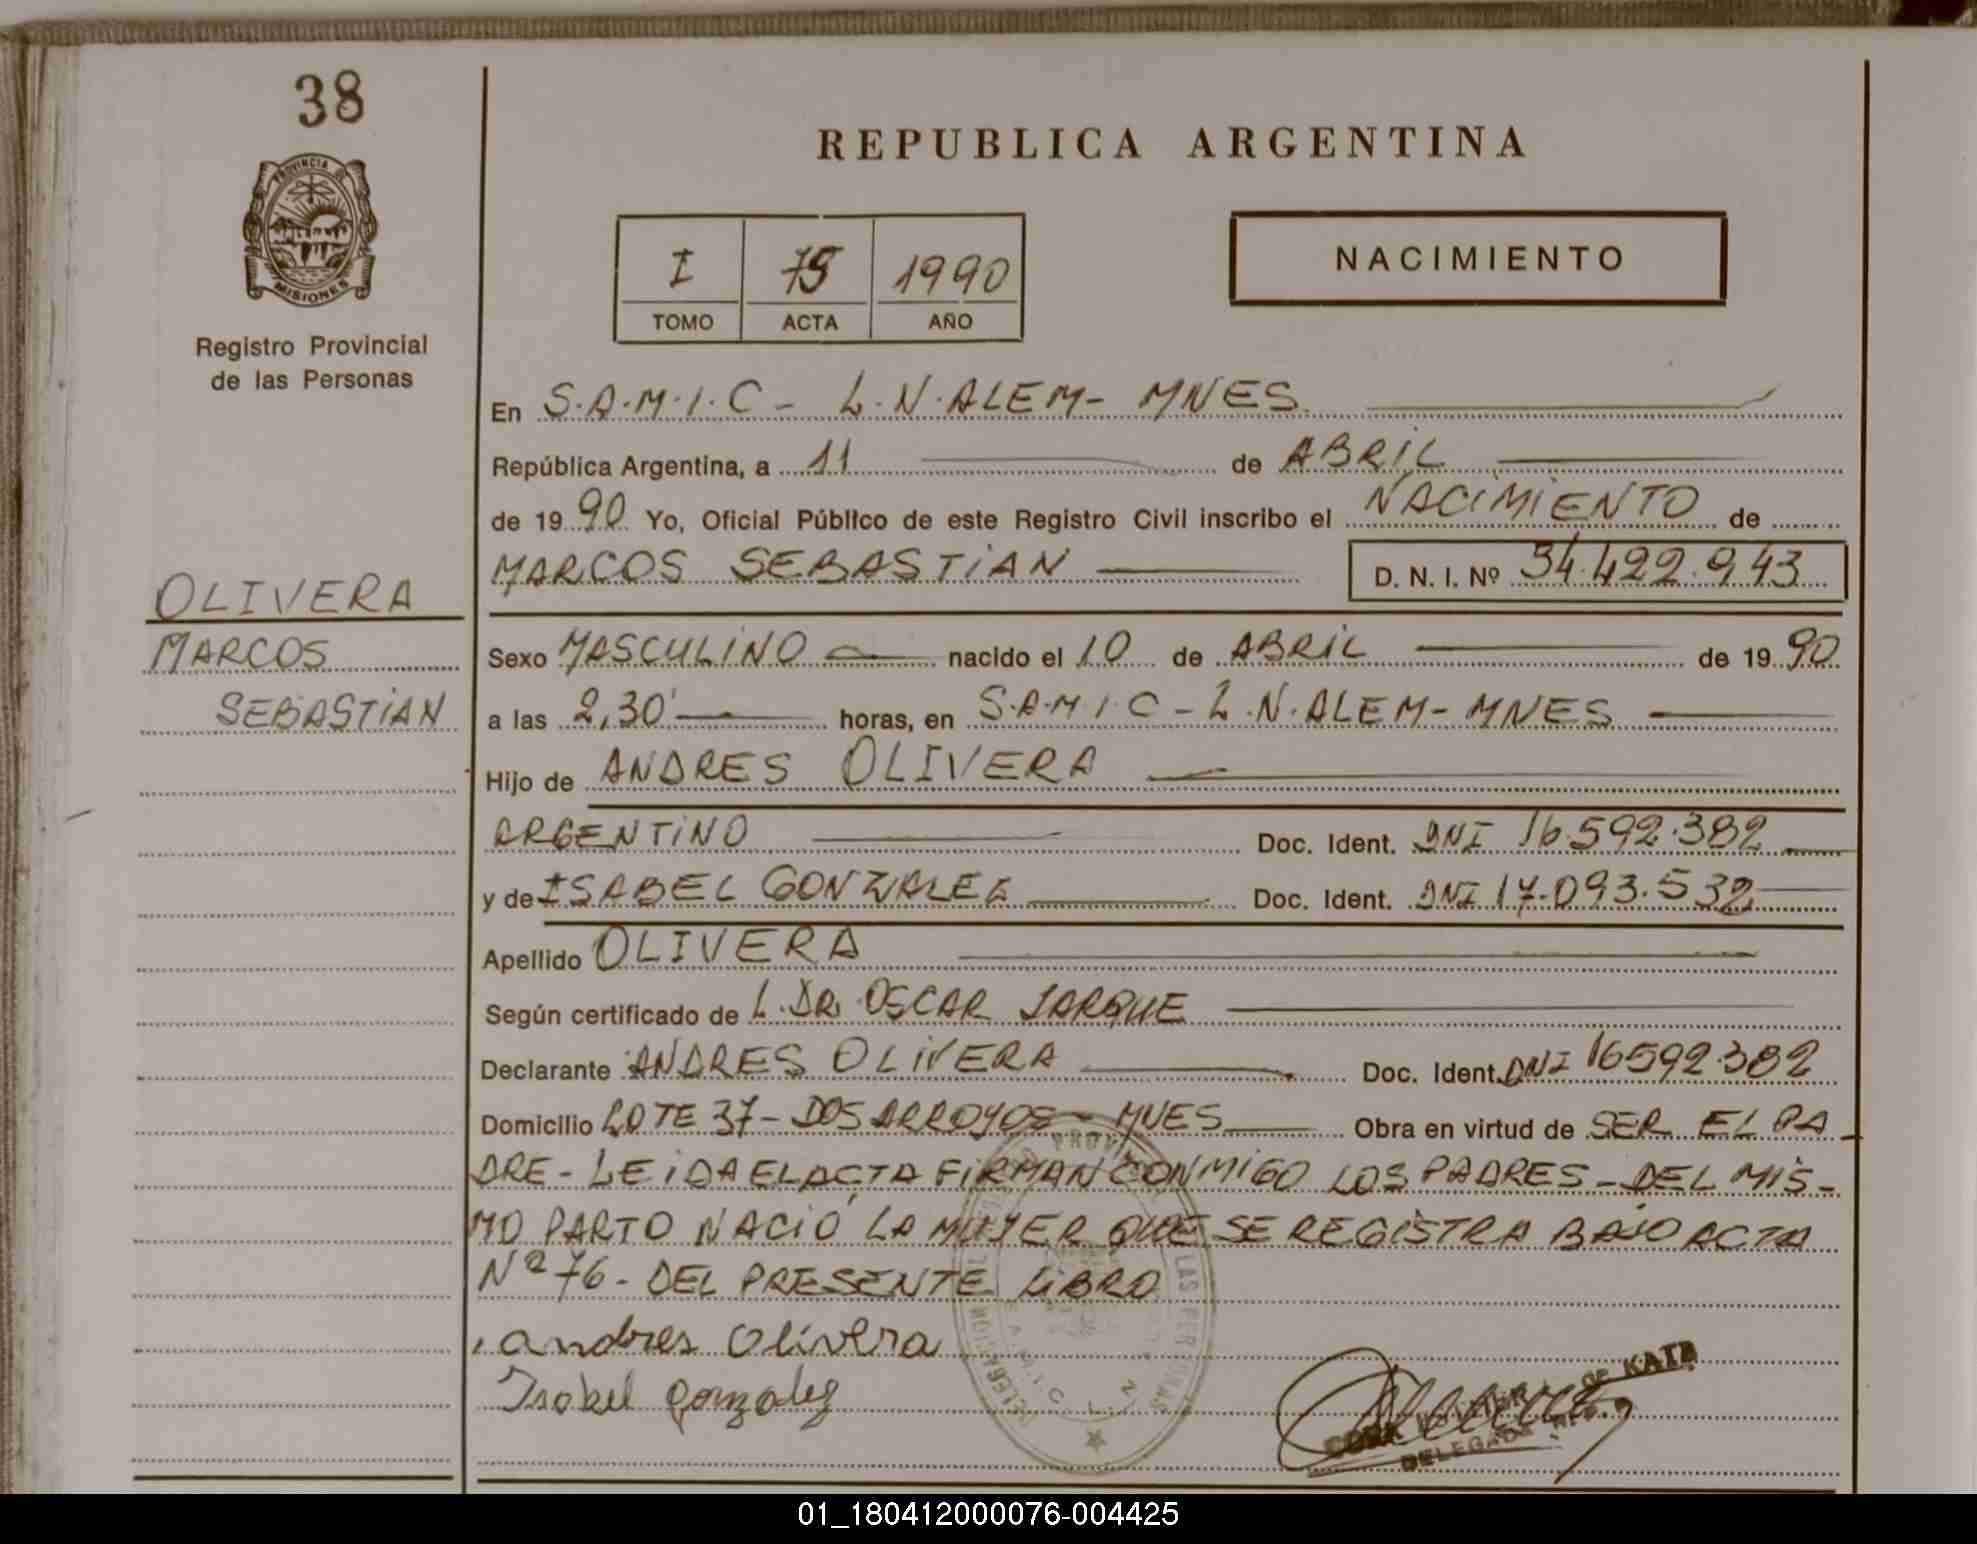 38
REPUBLICA ARGENTINA
PROVINCIA DE
MISIONES
Registro Provincial
de las Personas
I 75 1990
TOMO ACTA AÑO
NACIMIENTO
En S.A.M.I.C - L.N.ALEM- MNES
República Argentina, a 11 de ABRIL
de 1990 Yo, Oficial Público de este Registro Civil inscribo el NACIMIENTO de
MARCOS SEBASTIAN D. N. I. Nº 34.422.943
OLIVERA
MARCOS
SEBASTIAN
Sexo MASCULINO nacido el 10 de ABRIL de 1990
a las 2,30' horas, en S.A.M.I.C - L.N.ALEM- MNES
Hijo de ANDRES OLIVERA
ARGENTINO Doc. Ident. DNI 16.592.382
y de ISABEL GONZALEZ Doc. Ident. DNI 17.093.532
Apellido OLIVERA
Según certificado de L.DR. OSCAR JARQUE
Declarante ANDRES OLIVERA Doc. Ident. DNI 16592.382
Domicilio LOTE 37- DOS ARROYOS - MNES Obra en virtud de SER EL PA-
DRE- LEIDA EL ACTA FIRMAN CONMIGO LOS PADRES - DEL MIS-
MO PARTO NACIO LA MUJER QUE SE REGISTRA BAJO ACTA
Nº 76- DEL PRESENTE LIBRO
andres Olivera
Isabel gonzalez
DE KATZ
DELEGADA
01_180412000076-004425